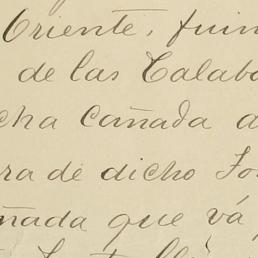 Oriente, fuim
de las Calaba
cha cañada d
ra de dicho Fo
ñada que vá